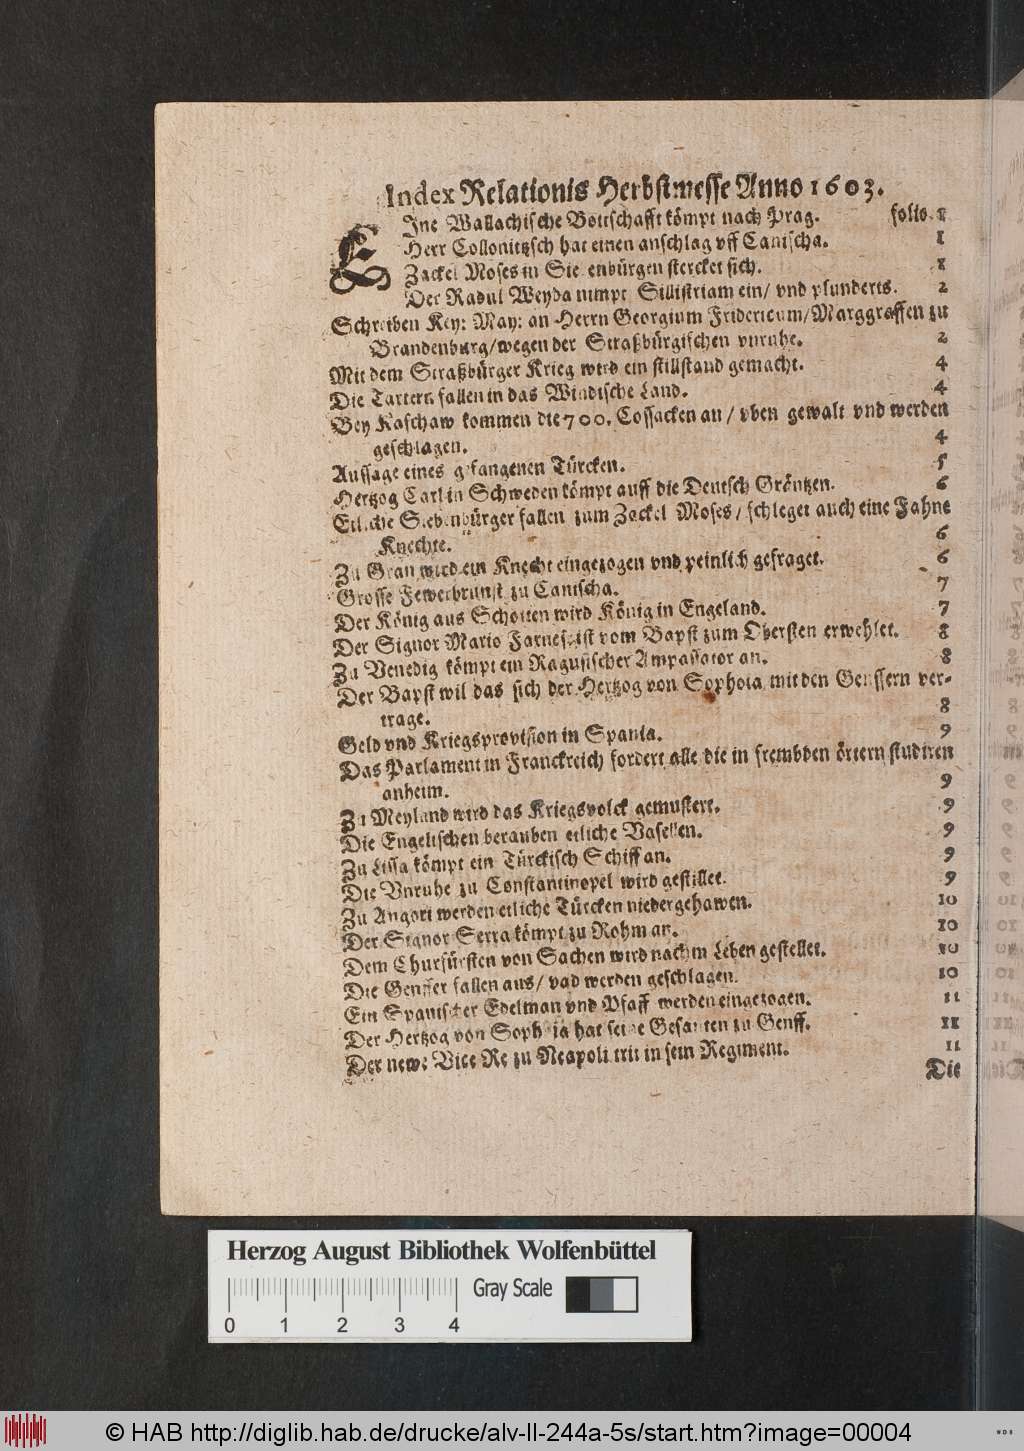 Index Relationis Herbstmesse Anno 1603.
EIne Wallachische Bottschafft kömpt nach Prag. folio. 1
Herr Collonitzsch hat einen anschlag vff Canischa. 1
Zackel Moses in Sie enbürgen stercket sich. 1
Der Radul Weyda nimpt Sillistriam ein/ vnd plunderts. 2
Schreiben Key: May: an Herrn Georgium Fridericum/Marggraffen zu
Brandenburg/wegen der Straßbürgischen vnruhe. 2
Mit dem Straßbürger Krieg wird ein stillstand gemacht. 4
Die Tartern fallen in das Windische Land. 4
Bey Kaschaw kommen die 700. Cossacken an/ vben gewalt vnd werden
geschlagen. 4
Aussage eines gefangenen Türcken. 5
Hertzog Carl in Schweden kömpt auff die Deutsch Gräntzen. 6
Etliche Siebenbürger fallen zum Zackel Moses/ schleget auch eine Fahne
Knechte. 6
Zu Gran wird ein Knecht eingezogen vnd peinlich gefraget. 6
Grosse Fewerbrunst zu Canischa. 7
Der König aus Schotten wird König in Engeland. 7
Der Signor Mario Farnes ist vom Bapst zum Obersten erwehlet. 8
Zu Venedig kömpt ein Ragusischer Ampassator an. 8
Der Bapst wil das sich der Hertzog von Sophoia mit den Genffern ver-
trage. 8
Geld vnd Kriegsprovision in Spania. 9
Das Parlament in Franckreich fordert alle die in frembden örtern studiren
anheim. 9
Zu Meyland wird das Kriegsvolck gemustert. 9
Die Engelischen berauben etliche Vasellen. 9
Zu Lissa kömpt ein Türckisch Schiff an. 9
Die Vnruhe zu Constantinopel wird gestillet. 9
Zu Angori werden etliche Türcken niedergehawen. 10
Der Signor Serra kömpt zu Rohm an. 10
Dem Churfürsten von Sachen wird nachm Leben gestellet. 10
Die Genffer fallen aus/ vnd werden geschlagen. 10
Ein Spanischer Edelman vnd Pfaff werden eingezogen. 11
Der Hertzog von Soph ia hat seine Gesanten zu Genff. 11
Der newe Vice Re zu Neapoli trit in sein Regiment. 11
Die
Herzog August Bibliothek Wolfenbüttel
Gray Scale
0 1 2 3 4
© HAB http://diglib.hab.de/drucke/alv-ll-244a-5s/start.htm?image=00004